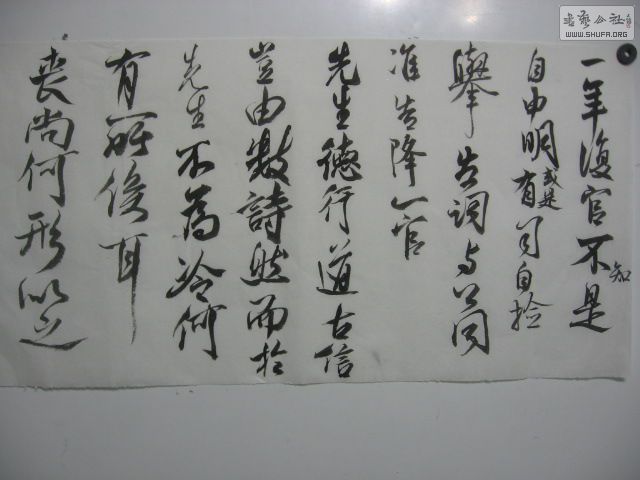 一年復官不知是
自由明或是有司自撿
舉告詞与公同
准告降一官
先生德行道古信
豈由數詩然而於
先生不為冷何
有所俟耳
喪尚何形似之
書藝公社
WWW.SHUFA.ORG